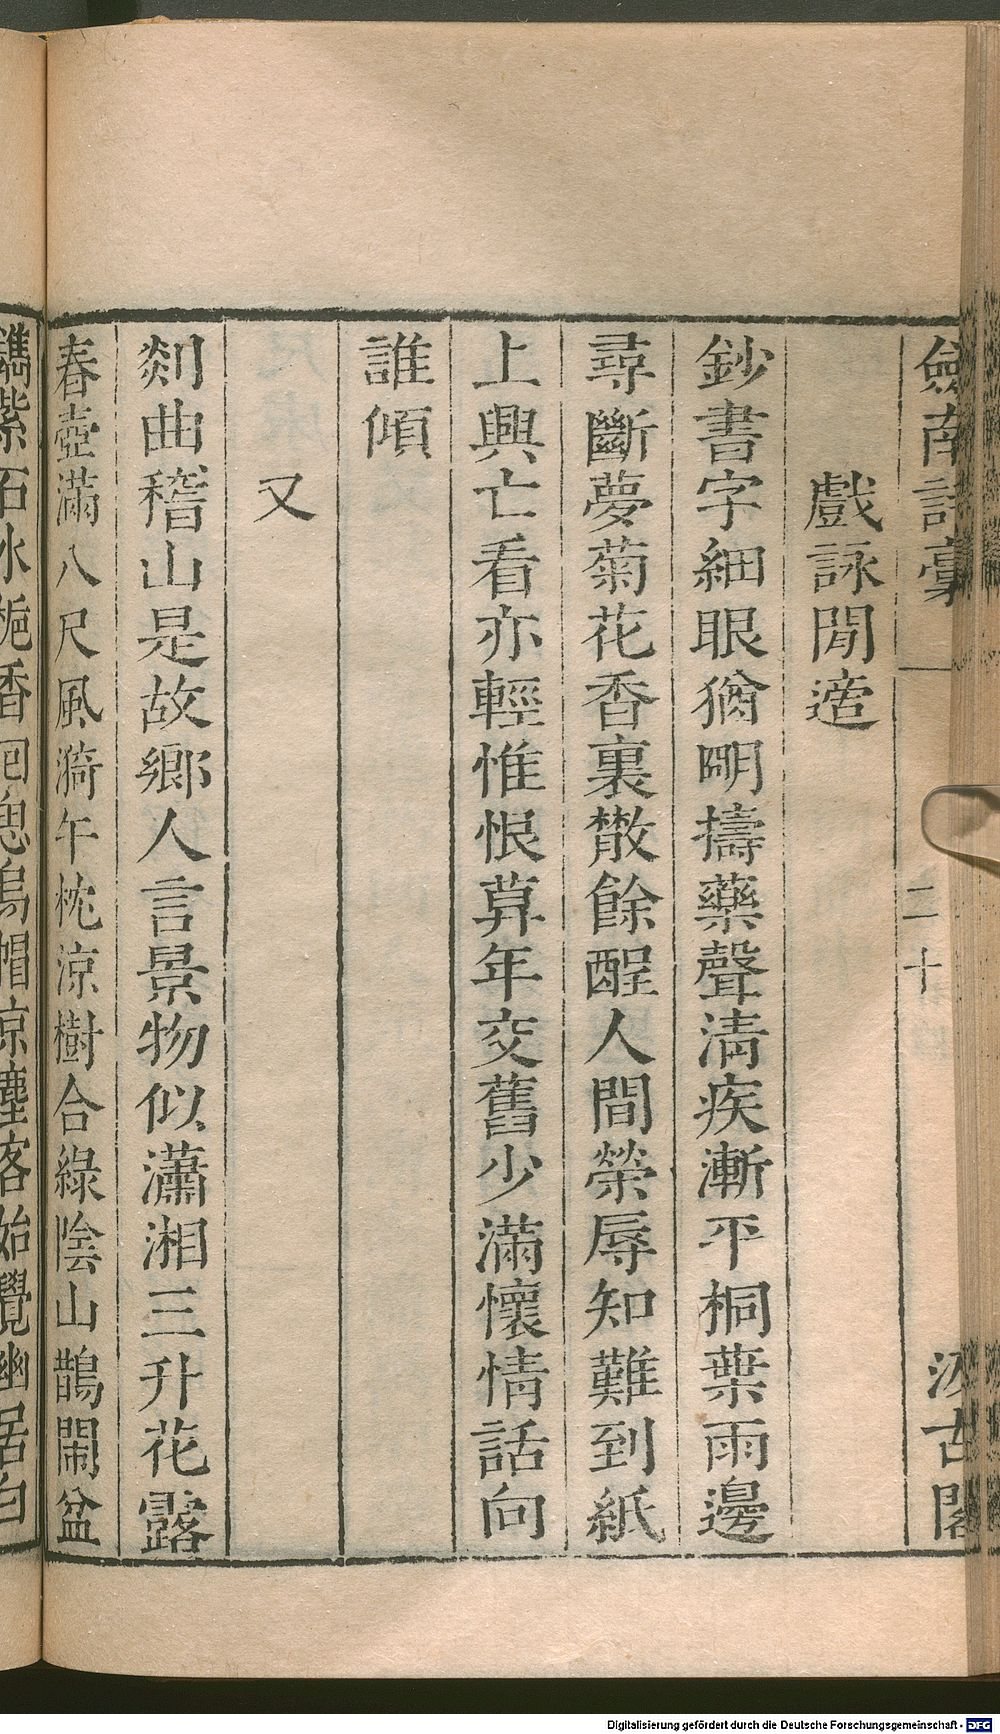 劍南詩稾
二十
汲古閣
戲詠閒適
鈔書字細眼猶明擣藥聲淸疾漸平桐葉雨邊
尋斷夢菊花香裏散餘酲人間榮辱知難到紙
上興亡看亦輕惟恨莫年交舊少滿懷情話向
誰傾
又
剡曲稽山是故鄉人言景物似瀟湘三升花露
春壺滿八尺風漪午枕涼樹合綠陰山鵲鬧盆
石水梔香回烏帽塵客始覺幽居白
Digitalisierung gefördert durch die Deutsche Forschungsgemeinschaft - DFG